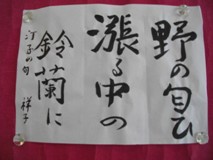 野の匂ひ
漲る中の
鈴蘭に
汀子の句 祥子